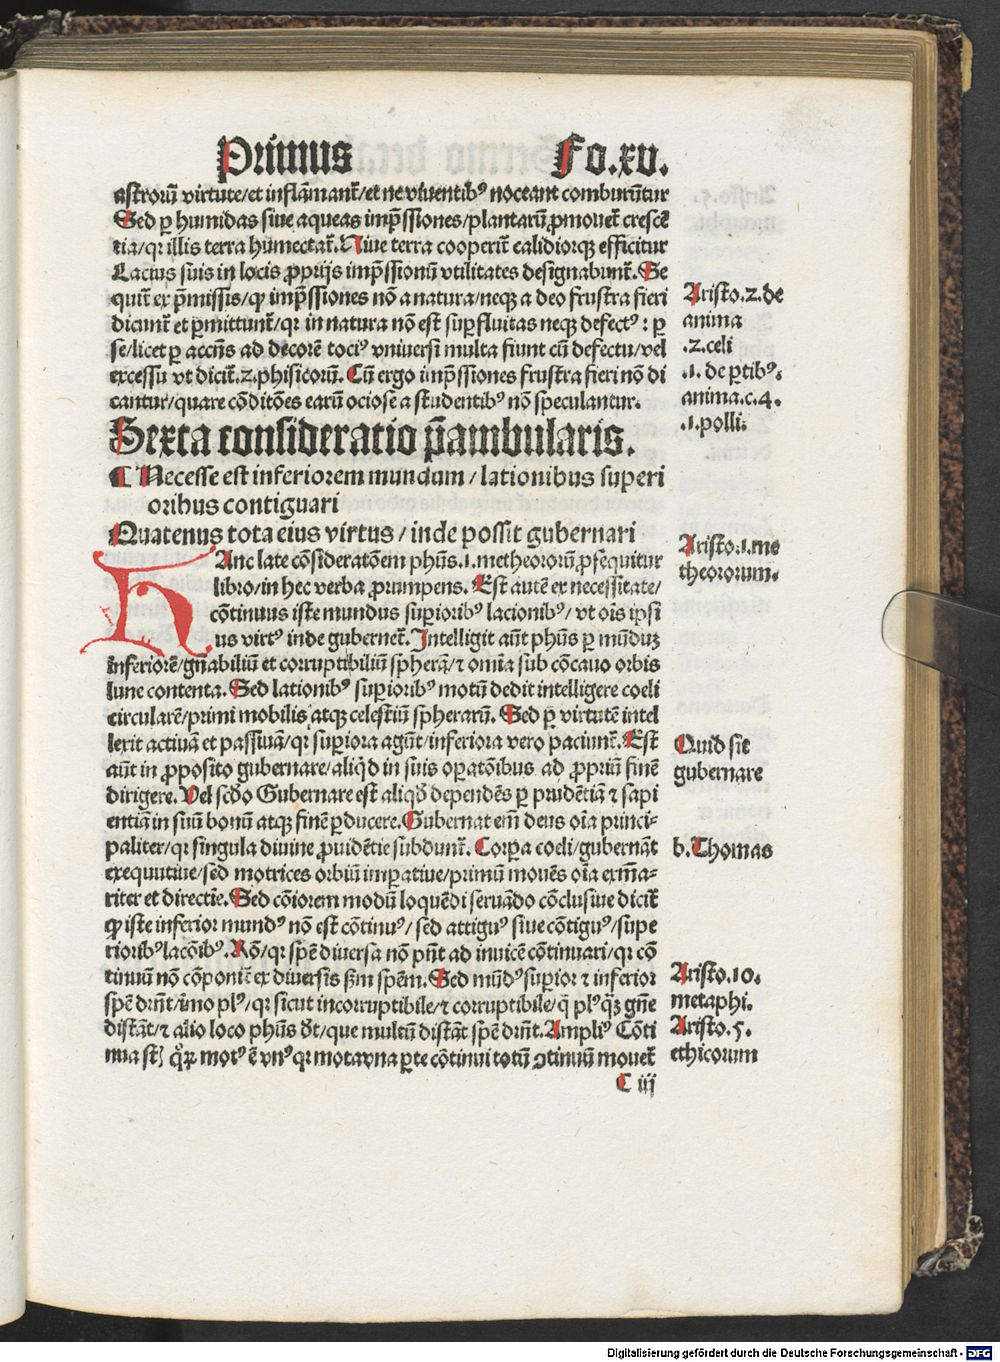 Primus Fo.xv.
astrorū virtute/et inflāmant̄/et ne viventibꝰ noceant comburūtur
Sed ꝑ humidas siue aqueas imp̄ssiones/plantarū ꝓmouet̄ crescē
tia/qꝛ illis terra humectat̄. Niue terra cooperit̄ calidiorqꝫ efficitur
Lacius suis in locis ꝓprijs imp̄ssionū vtilitates designabunt̄. Se
quit̄ ex p̄missis/ꝙ imp̄ssiones nō a natura/neqꝫ a deo frustra fieri
dicunt̄ et ꝑmittunt̄/qꝛ in natura nō est suꝑfluitas neqꝫ defectꝰ: ꝑ
se/licet ꝑ accn̄s ad decorē tociꝰ vniuersi multa fiunt cū defectu/vel
excessu vt dicit̄.2.phisicorū. Cū ergo imp̄ssiones frustra fieri nō di
cantur/quare cōditōes earū ociose a studentibꝰ nō speculantur.
Aristo.2.de
anima
.2.celi
.1. de ꝑtibꝰ.
anima.c.4.
.1.polli.
Sexta consideratio p̄ambularis.
¶ Necesse est inferiorem mundum/lationibus superi
oribus contiguari
Quatenus tota eius virtus/inde possit gubernari
HAnc late cōsideratōem phūs.1.metheororū ꝓsequitur
libro/in hec verba ꝓrumpens. Est autē ex necessitate/
cōtinuus iste mundus suꝑioribꝰ lacionibꝰ/vt oīs ipsi
us virtꝰ inde gubernet̄. Intelligit aūt phūs ꝑ mūduꝫ
inferiorē/gn̄abiliū et corruptibiliū spherā/⁊ omīa sub cōcauo orbis
lune contenta. Sed lationibꝰ suꝑioribꝰ motū dedit intelligere coeli
circularē/primi mobilis atqꝫ celestiū spherarū. Sed ꝑ virtutē intel
lexit actiuā et passiuā/qꝛ suꝑiora agūt/inferiora vero paciunt̄. Est
aūt in ꝓposito gubernare/aliq̇d in suis oꝑatōibus ad ꝓpriū finē
dirigere. Vel scd̄o Gubernare est aliqd̄ dependēs ꝑ prudētiā ⁊ sapi
entiā in suū bonū atqꝫ finē ꝑducere. Gubernat em̄ deus oīa princi-
paliter/qꝛ singula diuine ꝓuidētie subdunt̄. Corꝑa coeli/gubernāt
exequutiue/sed motrices orbiū imꝑatiue/primū mouēs oīa exm̄a-
riter et directie. Sed cōiorem modū loquēdi seruādo cōclusiue dicit̄
ꝙ iste inferior mundꝰ nō est cōtinuꝰ/sed attiguꝰ siue cōtiguꝰ/supe
rioribꝰ lacōibꝰ. Rō/qꝛ spē diuersa nō pn̄t ad inuicē cōtinuari/qꝛ cō
tinuū nō cōponit̄ ex diuersis ẜm spēm. Sed mūdꝰ suꝑior ⁊ inferior
spē drn̄t/īmo plꝰ/qꝛ sicut incorruptibile/⁊ corruptibile/q̄ plꝰ qꝫ gn̄e
distāt/⁊ alio loco phūs dt̄/que multū distāt spē drn̄t. Ampliꝰ Cōti
nua st̄ motꝰ ē vnꝰ qꝛ mota vna ꝑte cōtinui totū ꝯtinuū mouet̄
Aristo.1.me
theororum.
Quid sit
gubernare
b. Thomas
Aristo.10.
metaphi.
Aristo.5.
ethicorum
C iij
Digitalisierung gefördert durch die Deutsche Forschungsgemeinschaft - DFG